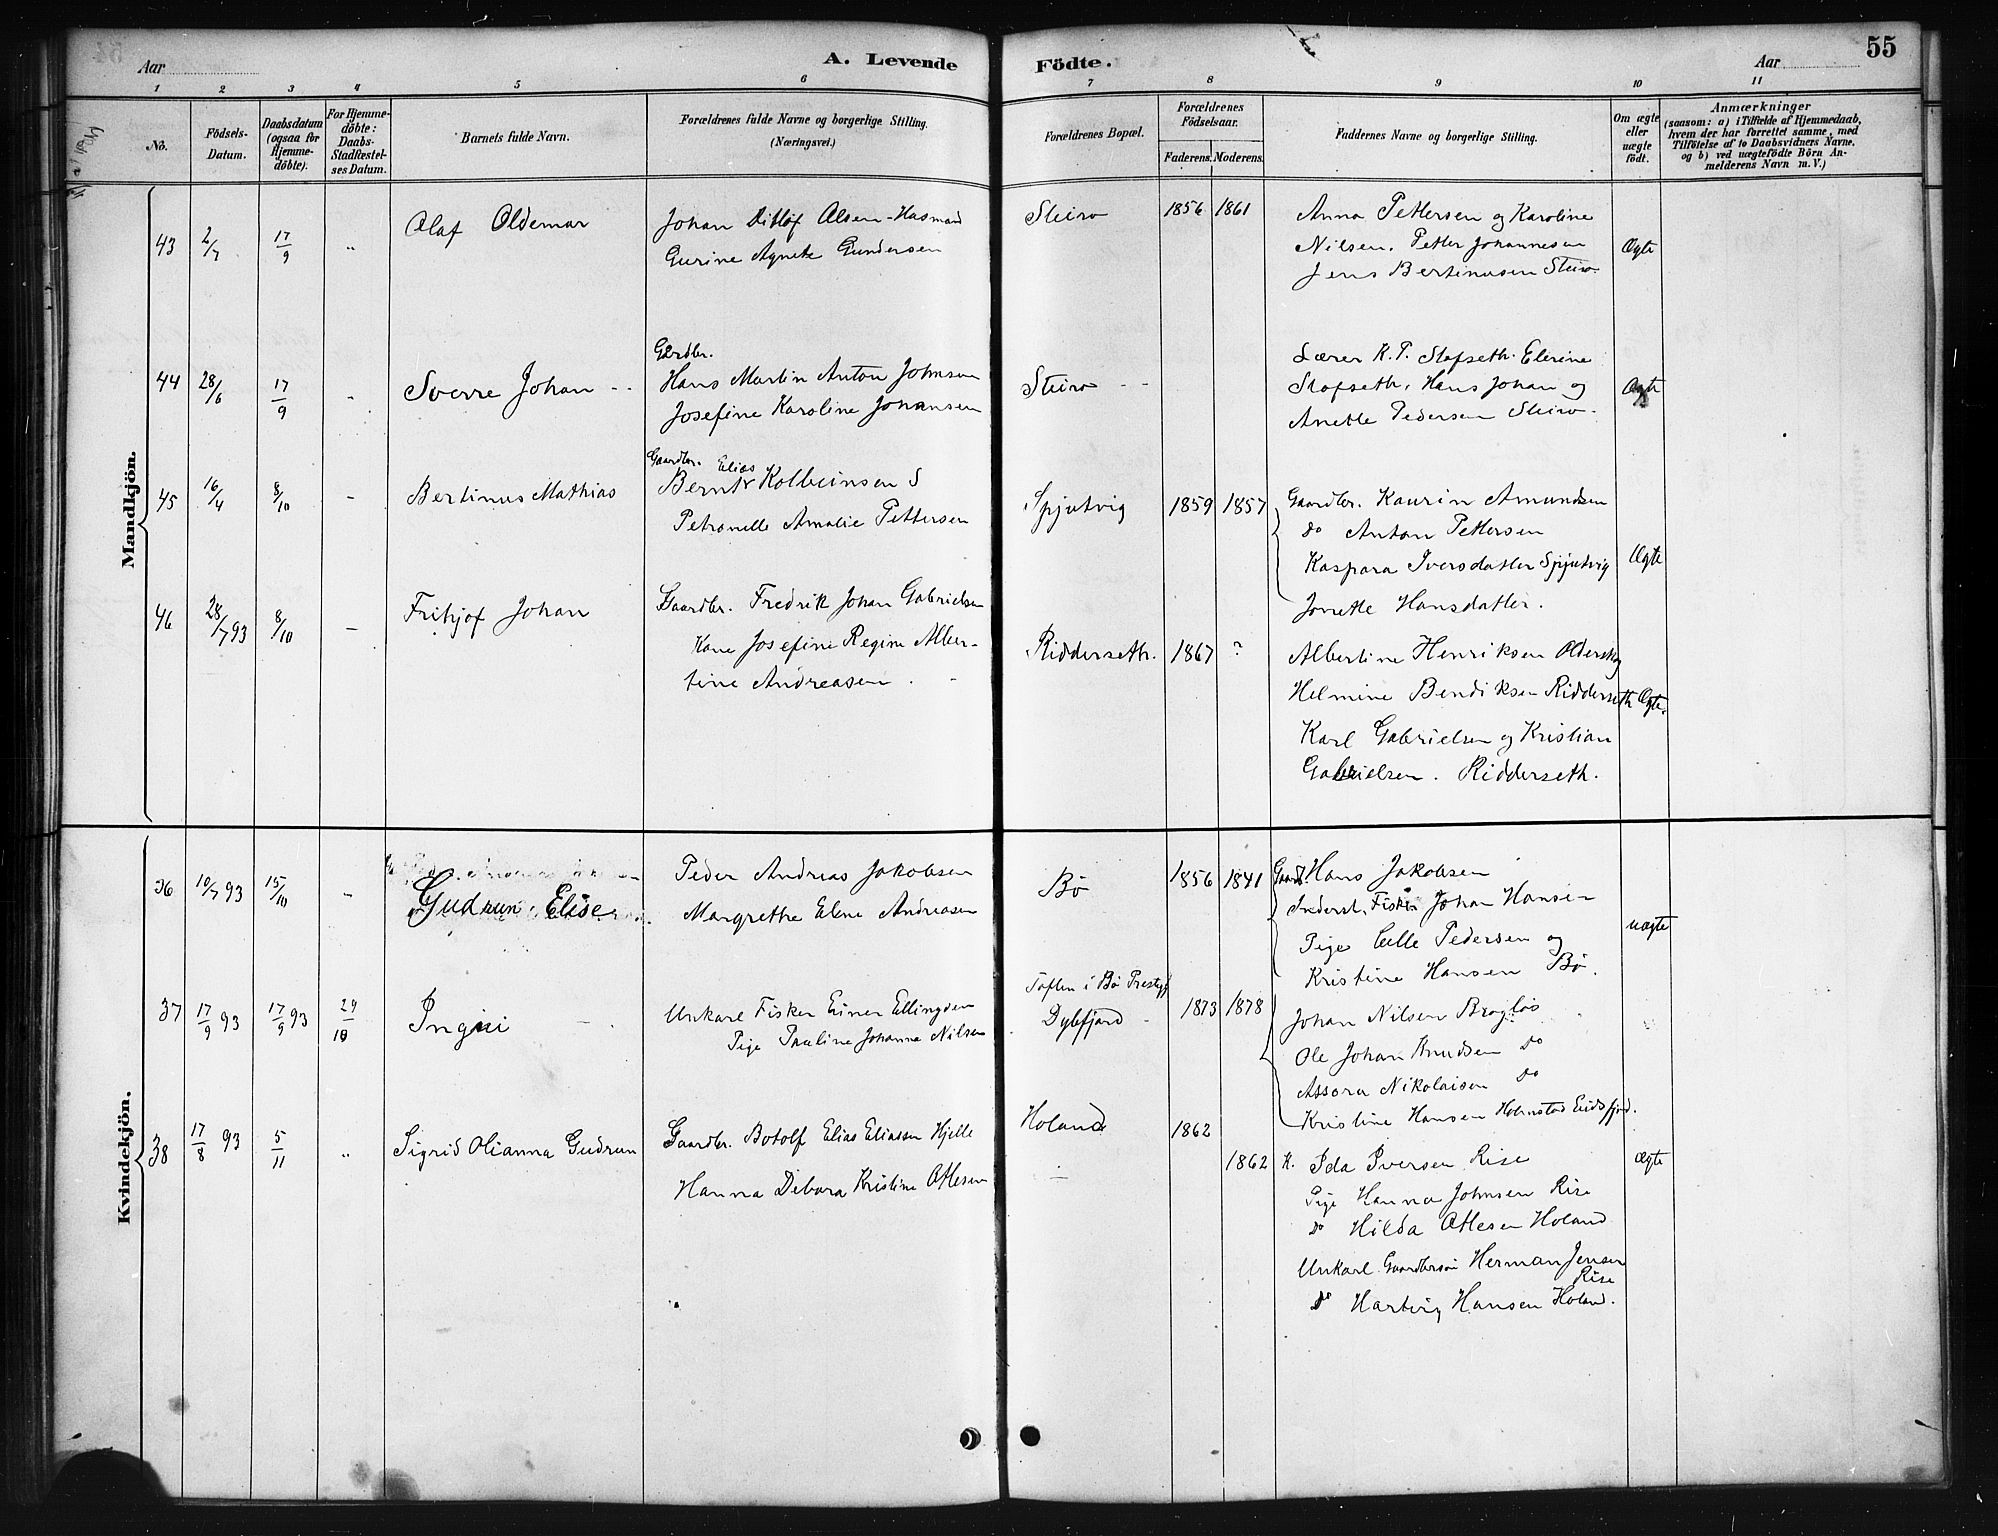 A. Levende Födte.
55
Aar
Aar
1 2 3 4 5 6 7 8 9 10 11
No.
Födsels-Datum.
Daabsdatum (ogsaa for Hjemme-döbte).
For Hjemme-döbte: Daabs-Stadfæstel-ses Datum.
Barnets fulde Navn.
Forældrenes fulde Navne og borgerlige Stilling. (Næringsvei.)
Forældrenes Bopæl.
Forældrenes Födselsaar.
Faderens. Moderens.
Faddernes Navne og borgerlige Stilling.
Om ægte eller uægte födt.
Anmærkninger
(saasom: a) i Tilfælde af Hjemmedaab, hvem der har forrettet samme, med Tilföielse af to Daabsvidners Navne, og b) ved uægtefödte Börn Anmelderens Navn m. V.)
Mandkjön.
43 2/7 17/9 " Olaf Oldemar
Johan Ditlöf Olsen - Husmand
Gurine Agnete Gundersen
Steiro 1856 1861
Anna Pettersen og Karoline
Nilsen. Petter Johannesen
Jens Bertinusen Steiro
Ægte
44 28/6 17/9 - Sverre Johan
Gårdbr.
Hans Martin Anton Johnsen
Josefine Karoline Johansen
Steiro
Lærer K. P. Slofseth. Elerine
Slofseth, Hans Johan og
Anette Pedersen Steiro
Ægte
45 16/4 8/10 - Bertinus Mathias
Gaardbr. Elias
Bernt Kolbeinsen
Petronelle Amalie Pettersen
Spjutvig 1859 1857
Gaardbr. Kaurin Amundsen
do Anton Pettersen
Kaspara Iversdatter Spjutvig
Jonette Hansdatter.
Ægte
46 28/7 93 8/10 - Frihjof Johan
Gaardbr. Fredrik Johan Gabrielsen
Kone Josefine Regine Alber-
tine Andreasen.
Ridderseth. 1867 ?
Albertine Henriksen Olderskog
Helmine Bendiksen Ridderseth
Karl Gabrielsen og Kristian
Gabrielsen. Ridderseth.
Ægte.
Kvindekjön.
36 10/7 93 15/10 - Gudrun Elise
Peder Andreas Jakobsen
Margrethe Elene Andreasen
Bø 1856 1841
Gaardb. Hans Jakobsen
Inderst, Fisker Johan Hansen
Pige Celle Pedersen og
Kristine Hansen Bø.
uægte
37 17/9 93 17/9 93 29/10
Unkarl Fisker Einer Ellingsen
Pige Pauline Johanna Nilsen
Toften i Bø Prestgj
Dybfjord 1873 1878
Johan Nilsen Brogløs
Ole Johan Knudsen Do
Assora Nikolaisen Do
Kristine Hansen Holmstad Eidsfjord.
38 17/8 93 5/11 " Sigrid Olianna Gudrun
Gaardbr. Botolf Elias Eliassen Hjelle
Hanna Debora Kristine Ottesen
Holand 1862
1862
K. Ida Iversen Rise
Pige Hanna Johnsen Rise
Do Hilda Ottesen Holand
Unkarl Gaardbrsön Herman Jensen
Rise
Do Hartvig Hansen Holand.
Ægte